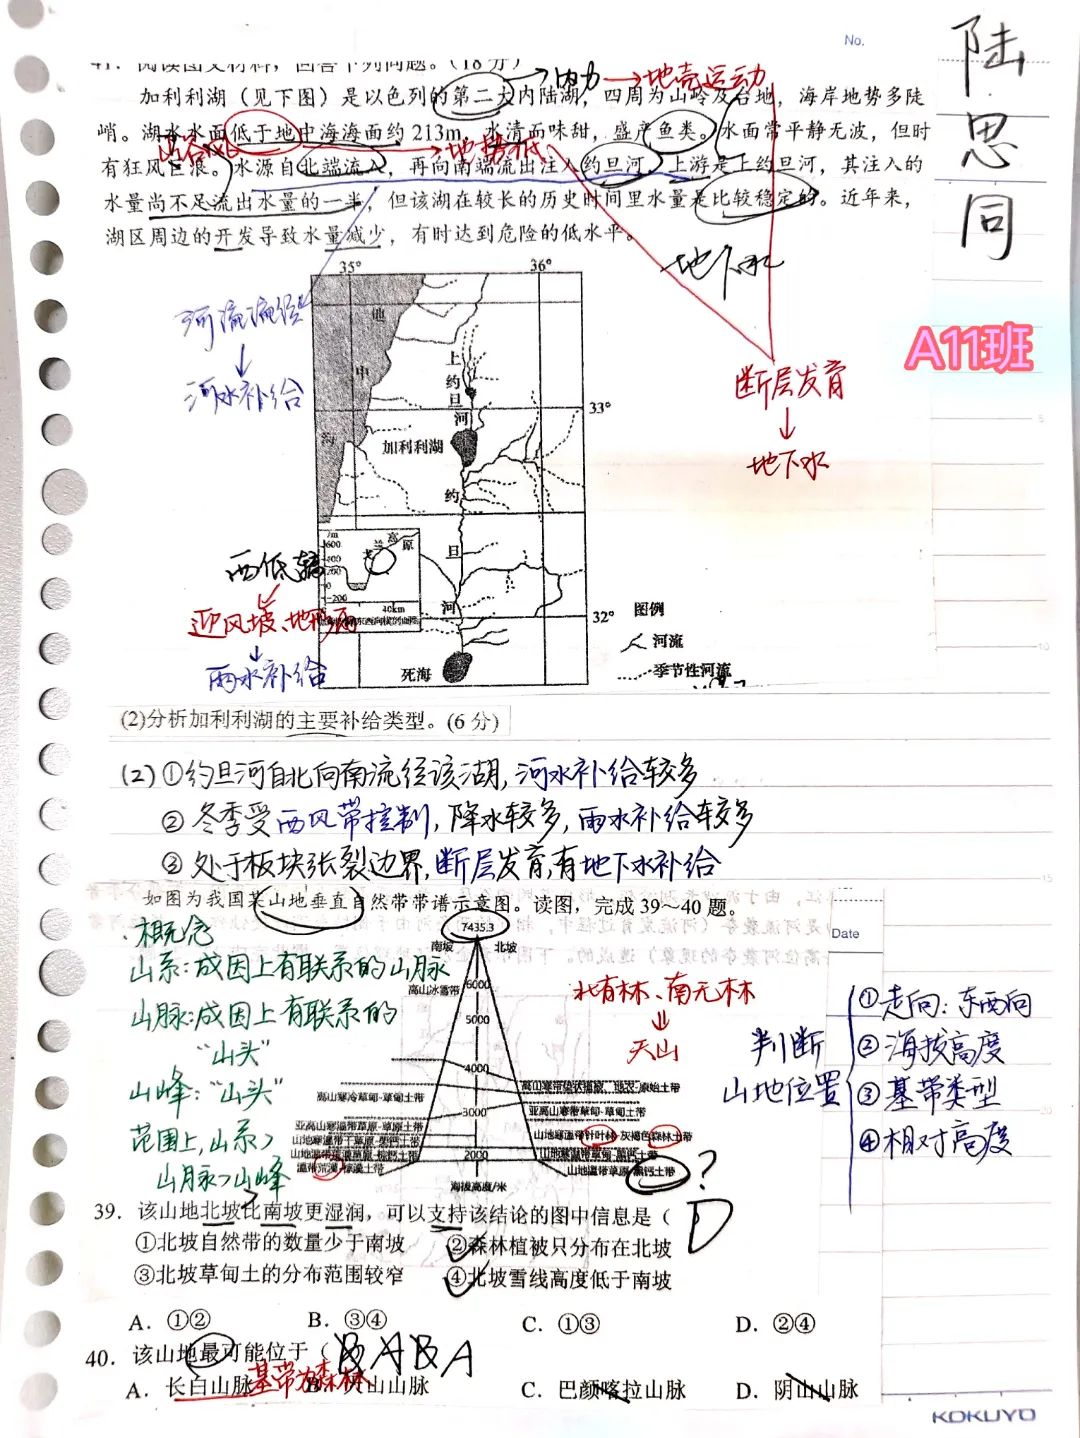 No.
陆思同
41. 阅读图文材料，回答下列问题。(18分)
→内力→地壳运动
加利利湖（见下图）是以色列的第二大内陆湖，四周为山岭及台地，海岸地势多陡
峭。湖水水面低于地中海海面约213m，水清而味甜，盛产鱼类。水面常平静无波，但时
→地势低
有狂风巨浪。水源自北端流入，再向南端流出注入约旦河，上游是上约旦河，其注入的
水量尚不足流出水量的一半，但该湖在较长的历史时间里水量是比较稳定的。近年来，
湖区周边的开发导致水量减少，有时达到危险的低水平。
地下水
A11班
断层发育
↓
地下水
河流流经
↓
河水补给
35° 36°
地中海
上约旦河
33°
加利利湖
约旦河
戈兰高原
/m
600
400
200
0
-200
40km
32°
死海
图例
河流
季节性河流
西低
迎风坡、地形雨
↓
雨水补给
(2)分析加利利湖的主要补给类型。(6分)
(2)①约旦河自北向南流经该湖，河水补给较多
②冬季受西风带控制，降水较多，雨水补给较多
③处于板块张裂边界，断层发育，有地下水补给
如图为我国某山地垂直自然带带谱示意图。读图，完成39～40题。
Date
概念
山系：成因上有联系的山脉
山脉：成因上有联系的
“山头”
山峰：“山头”
范围上，山系>
山脉>山峰
7435.3
南坡 北坡
高山冰雪带
6000
5000
4000
3000
2000
海拔高度/米
高山寒冷草甸-草甸土带
亚高山寒温带草原-草原土带
山地寒温带干草原-栗钙土带
温带荒漠-棕漠土带
亚高山寒带草甸-草甸土带
山地寒温带针叶林-灰褐色森林土带
山地温带草原-黑钙土带
?
北有林、南无林
⇓
天山
判断
山地位置
①走向：东西向
②海拔高度
③基带类型
④相对高度
39. 该山地北坡比南坡更湿润，可以支持该结论的图中信息是（ D
①北坡自然带的数量少于南坡 ②森林植被只分布在北坡
③北坡草甸土的分布范围较窄 ④北坡雪线高度低于南坡
A. ①② B. ③④ C. ①③ D. ②④
40. 该山地最可能位于（ B A B A
基带为森林
A. 长白山脉 B. 天山山脉 C. 巴颜喀拉山脉 D. 阴山山脉
KOKUYO